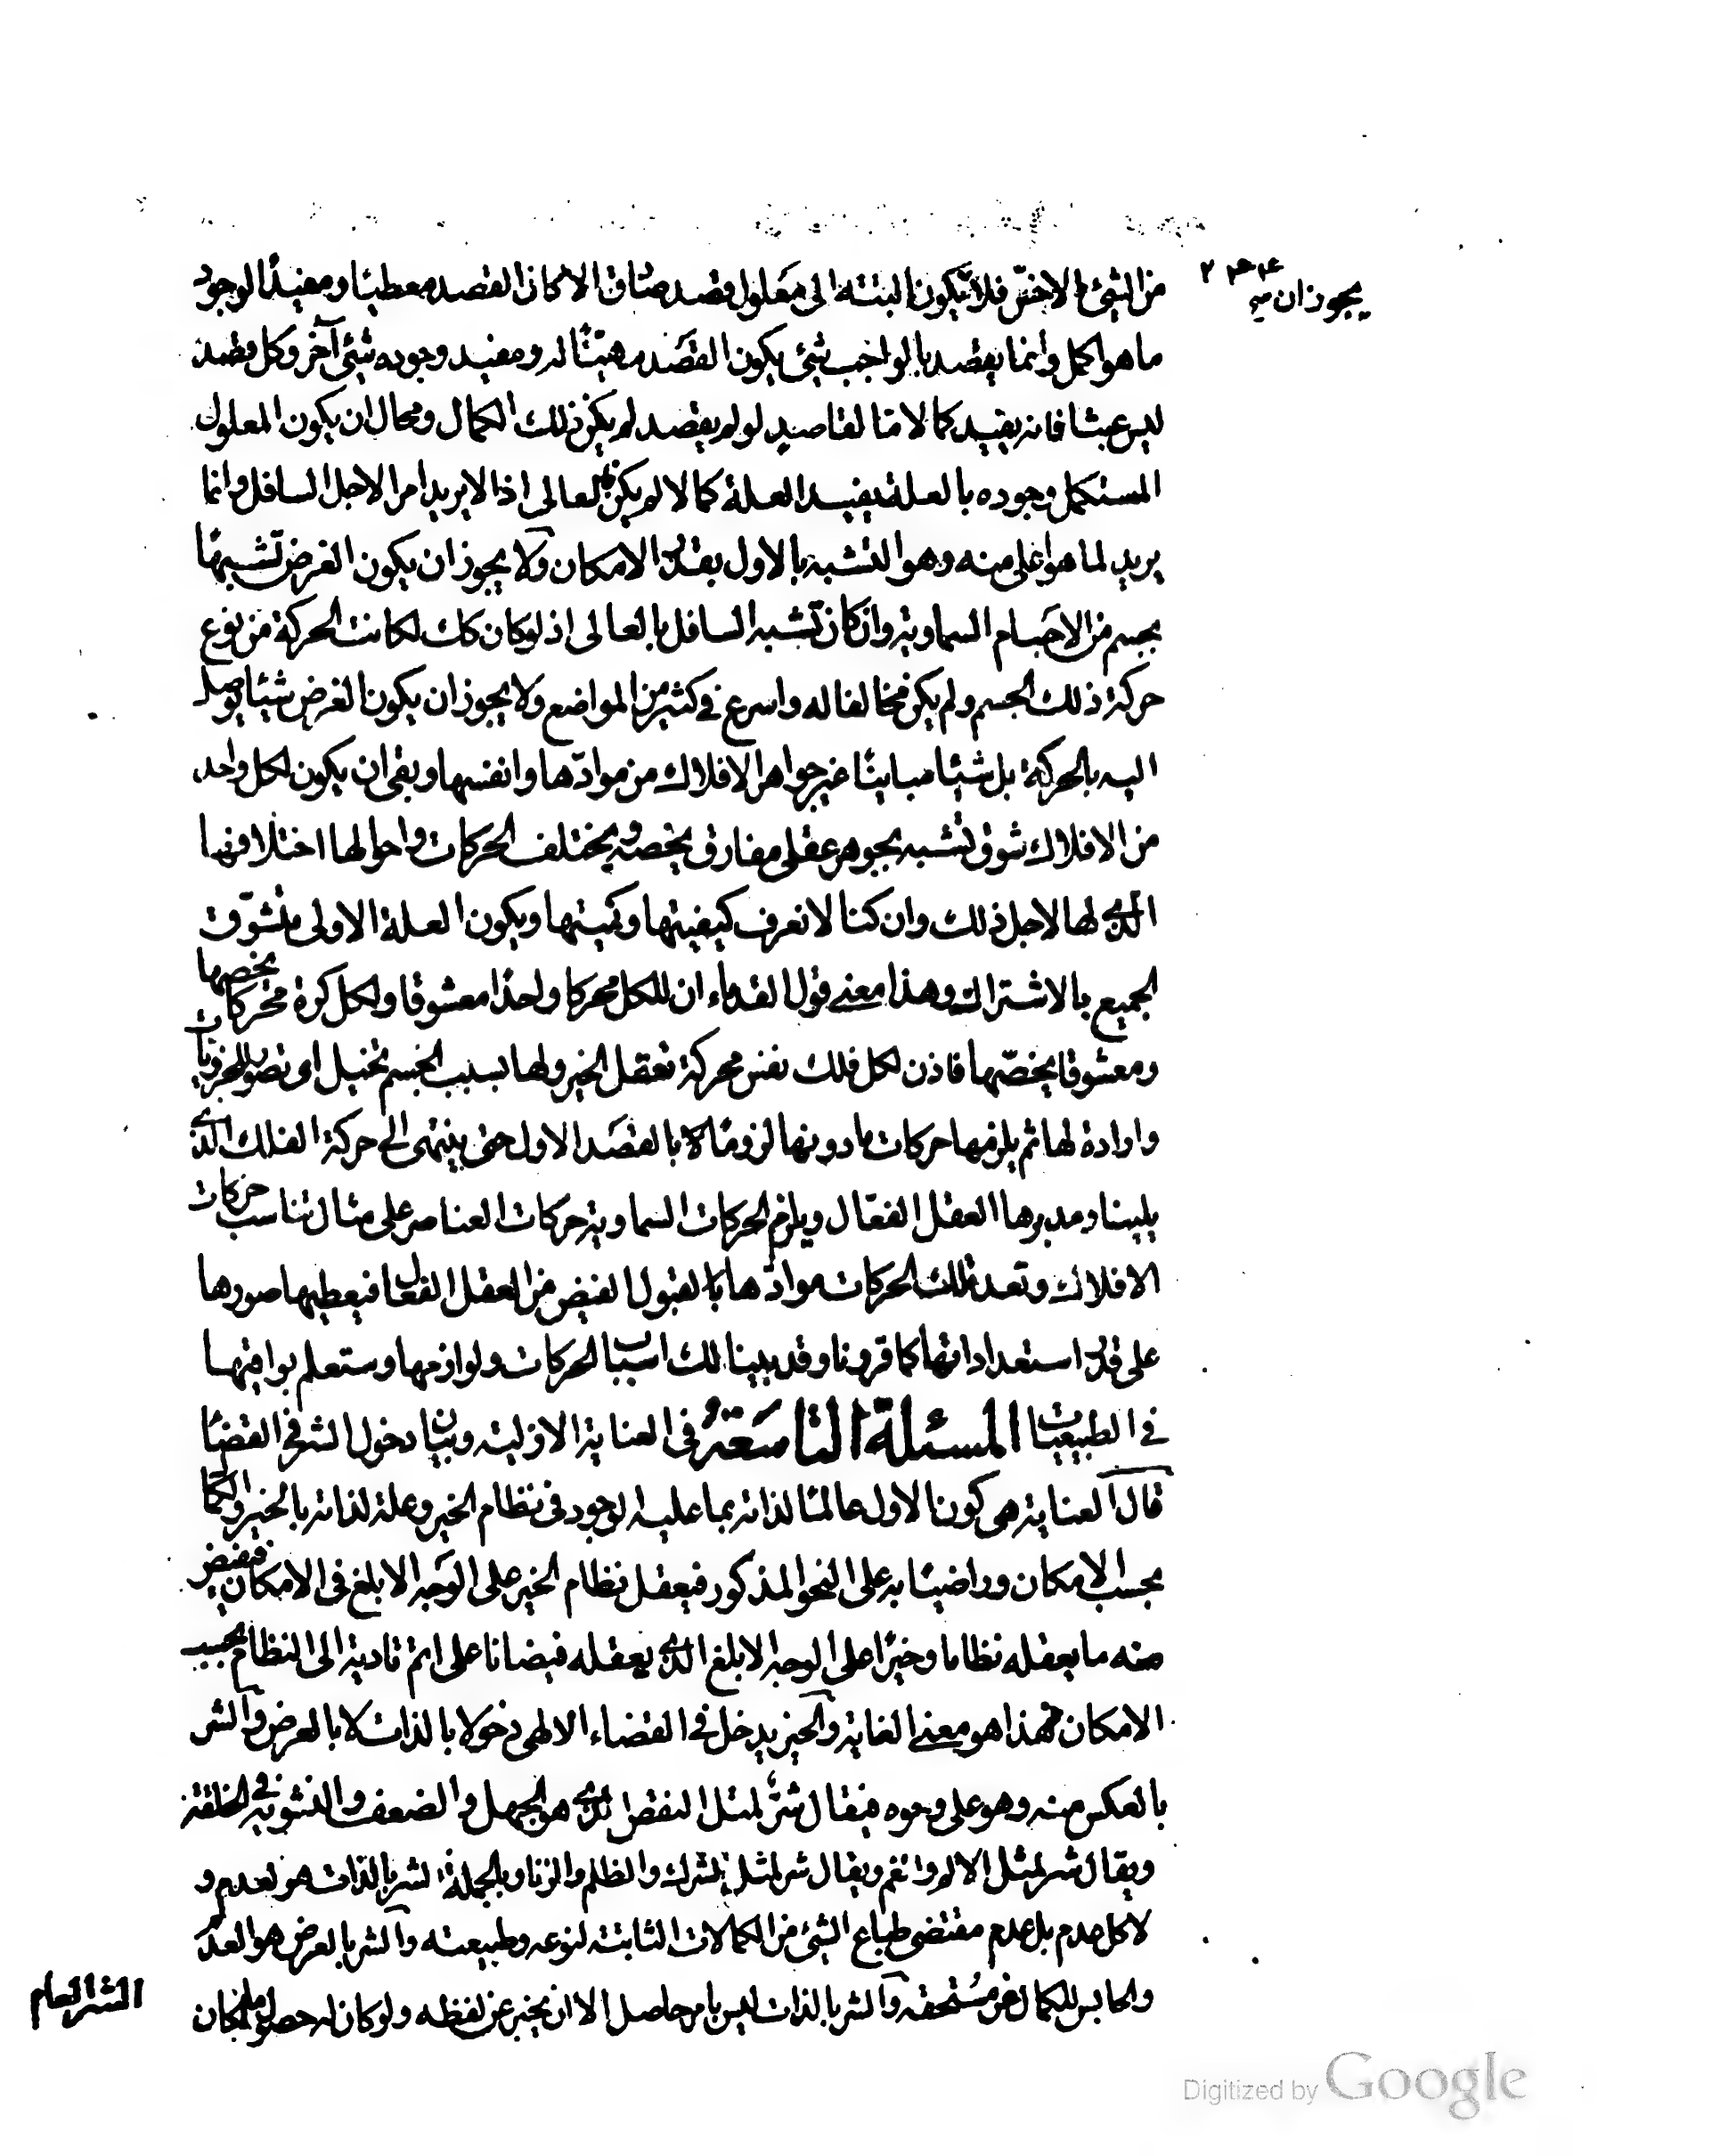 يجوز ان
من الشيئ الاخس فلا يكون البتة الى معلول قصد صادق الا كان القصد معطيا ومفيدا لوجود
ما هو اكمل وانما يقصد بالواجب شيئ يكون القصد مهيئا له ومفيد وجوده شيئ آخر وكل قصد
ليس عبثا فانه يفيد كمالا ما لقاصد لو لم يقصد لم يكن ذلك الكمال ومحال ان يكون المعلول
المستكمل وجوده بالعلة يفيد العلة كمالا لم يكن فالعالى اذا لا يريد امرا لاجل السافل وانما
يريد لما هو اعلى منه وهو التشبه بالاول بقدر الامكان ولا يجوز ان يكون الغرض تشبها
بجسم من الاجسام السماوية وان كان تشبه السافل بالعالى اذ لو كان كك لكانت الحركة من نوع
حركة ذلك الجسم ولم يكن مخالفا له واسرع في كثير من المواضع ولا يجوز ان يكون الغرض شيئا يوصل
اليه بالحركة بل شيئا مباينا غير جواهر الافلاك من موادها وانفسها وبقى ان يكون لكل واحد
من الافلاك شوق تشبه بجوهر عقلى مفارق يخصه ويختلف الحركات واحوالها اختلافها
الذى لها لاجل ذلك وان كنا لا نعرف كيفيتها وكميتها ويكون العلة الاولى متشوق
الجميع بالاشتراك وهذا معنى قول القدماء ان للكل محركا واحدا معشوقا ولكل كرة محركا يخصها
ومعشوقا يخصها فاذن لكل فلك نفس محركة تعقل الخير ولها بسبب الجسم تخيل اى تصور للجزئيات
وارادة لها ثم يلزمها حركات ما دونها لزوما لا بالقصد الاول حتى ينتهى الى حركة الفلك الذى
يلينا ومدبرها العقل الفعال ويلزم الحركات السماوية حركات العناصر على مثال تناسب حركات
الافلاك وتعد تلك الحركات موادها لقبول الفيض من العقل الفعال فيعطيها صورها
على قدر استعداداتها كما قررنا وقد تبينا لك اسباب الحركات ولوازمها وستعلم بواقيها
في الطبيعيات المسئلة التاسعة في العناية الازلية وبيان دخول الشر في القضاء
قال العناية هى كون الاول عالما لذاته بما عليه الوجود في نظام الخير وعلة لذاته بالخير والكمال
بحسب الامكان وراضيا به على النحو المذكور فيعقل نظام الخير على الوجه الابلغ في الامكان فيفيض
منه ما يعقله نظاما وخيرا على الوجه الابلغ الذى يعقله فيضانا على اتم تادية الى النظام بحسب
الامكان فهذا هو معنى العناية والخير يدخل في القضاء الالهى دخولا بالذات لا بالعرض والشر
بالعكس منه وهو على وجوه فيقال شر لمثل النقص الذى هو الجهل والضعف والتشويه في الخلقة
ويقال شر لمثل الالم والغم ويقال شر لمثل الشرك والظلم والزنا وبالجملة الشر بالذات هو العدم و
لا كل عدم بل عدم مقتضى طباع الشيئ من الكمالات الثابتة لنوعه وطبيعته والشر بالعرض هو المعدم
والحابس للكمال عن مستحقه والشر بالذات ليس بامر حاصل الا ان يخبر عن لفظه ولو كان له حصول ما لكان
الشر العام
Digitized by Google